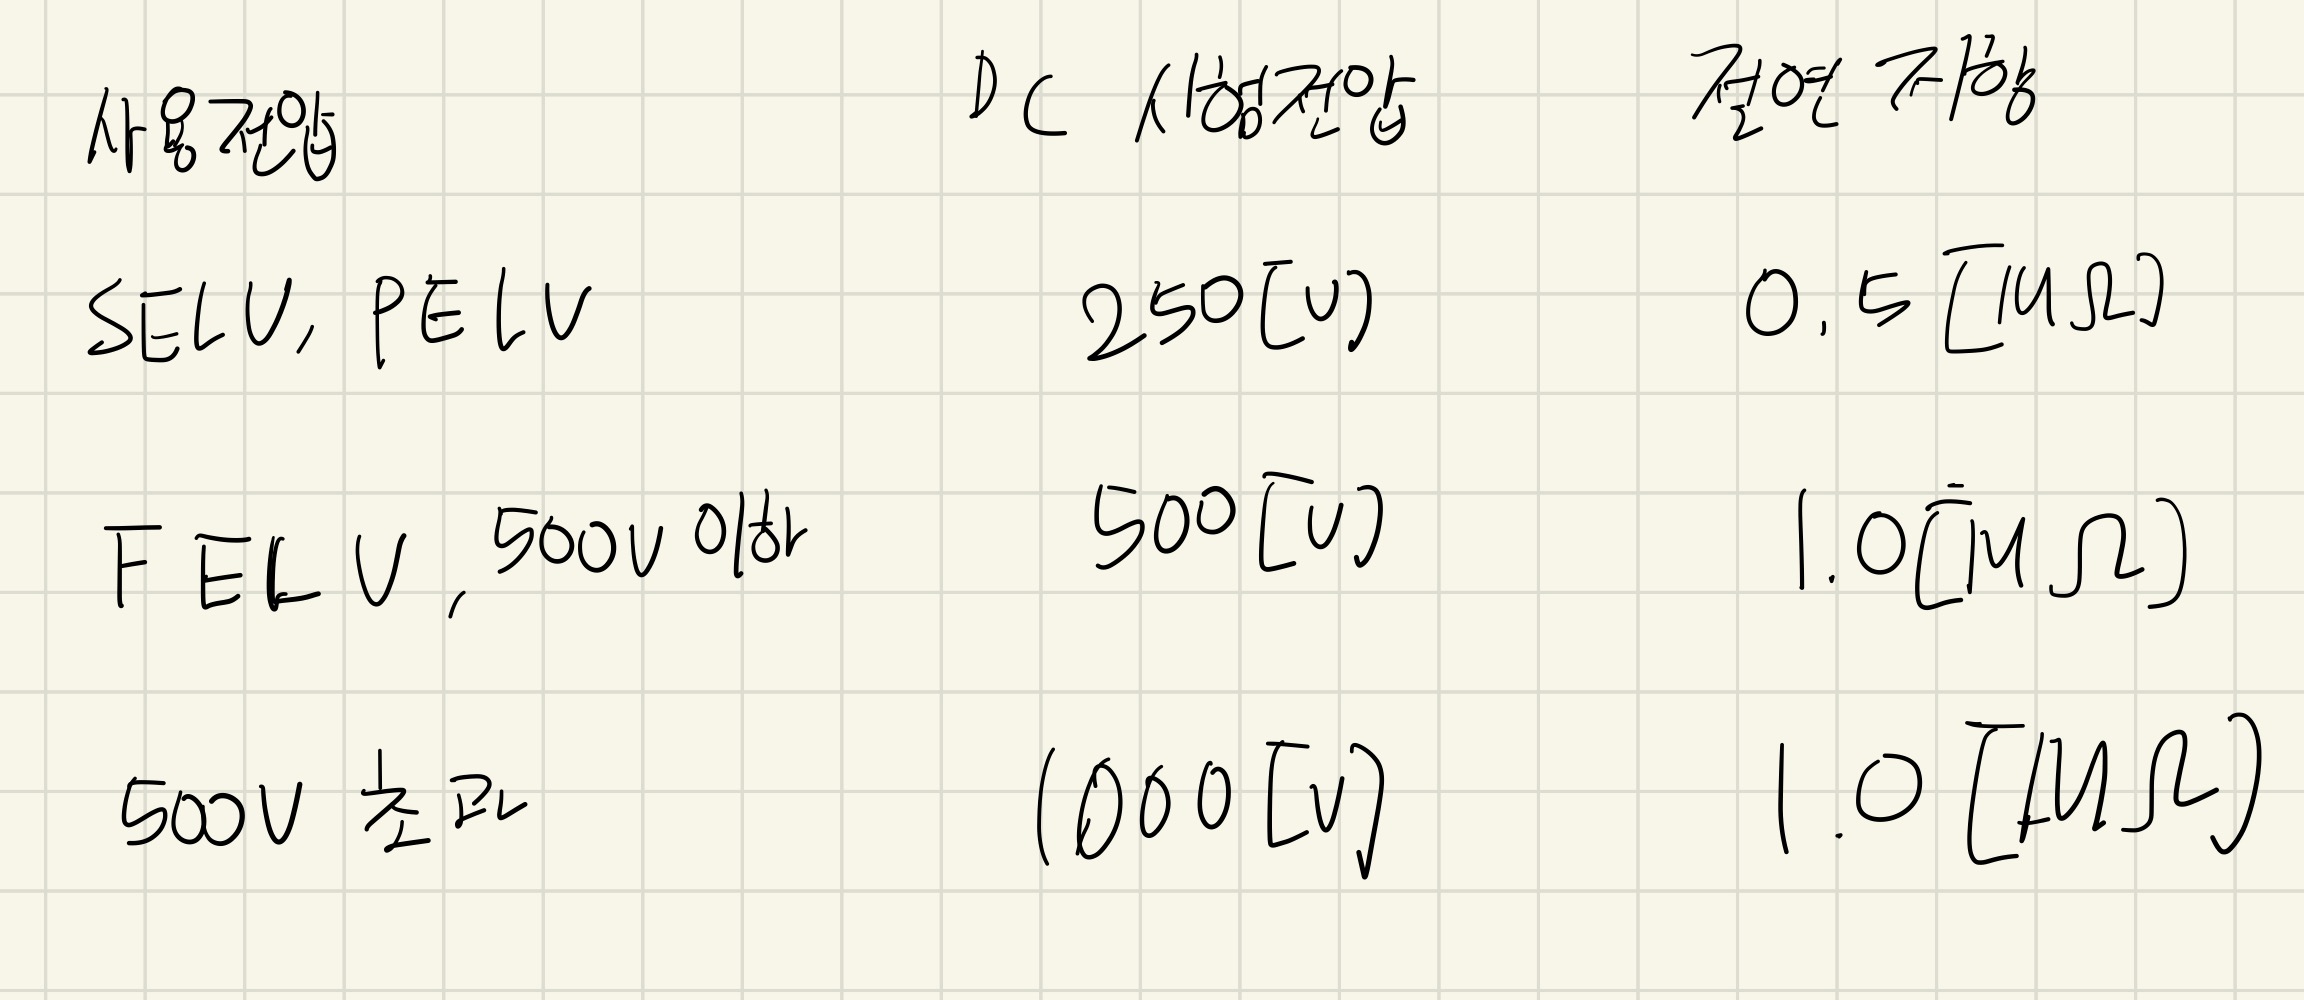 사용전압 DC 시험전압 절연 저항
SELV, PELV 250[V] 0.5[MΩ]
FELV, 500V 이하 500[V] 1.0[MΩ]
500V 초과 1000[V] 1.0[MΩ]